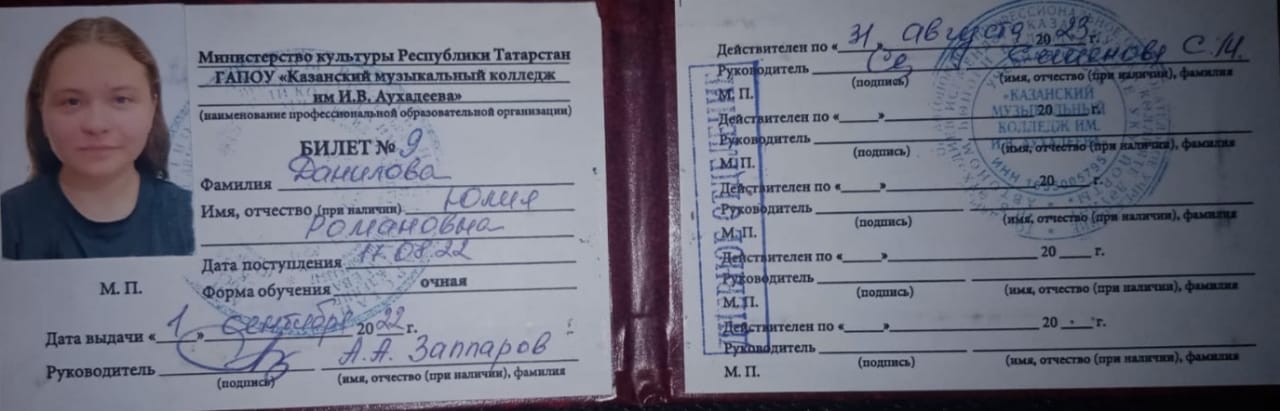 Министерство культуры Республики Татарстан
ГАПОУ «Казанский музыкальный колледж
им И.В. Аухадеева»
(наименование профессиональной образовательной организации)
БИЛЕТ № 9
Фамилия Данилова
Имя, отчество (при наличии) Юлия
Романовна
Дата поступления 17.08.22
Форма обучения очная
М. П.
Дата выдачи «1» сентября 2022 г.
Руководитель А.А. Заппаров
(подпись) (имя, отчество (при наличии), фамилия
Действителен по «31» августа 2023 г.
Руководитель Семенова С.М.
(подпись) (имя, отчество (при наличии), фамилия
М. П.
Действителен по «___»___ 20___ г.
Руководитель
(подпись) (имя, отчество (при наличии), фамилия
М. П.
Действителен по «___»___ 20___ г.
Руководитель
(подпись) (имя, отчество (при наличии), фамилия
М. П.
Действителен по «___»___ 20___ г.
Руководитель
(подпись) (имя, отчество (при наличии), фамилия
М. П.
Действителен по «___»___ 20___ г.
Руководитель
(подпись) (имя, отчество (при наличии), фамилия
М. П.
ДНЕВНОЕ ОТДЕЛЕНИЕ
«КАЗАНСКИЙ
МУЗЫКАЛЬНЫЙ
КОЛЛЕДЖ ИМ.